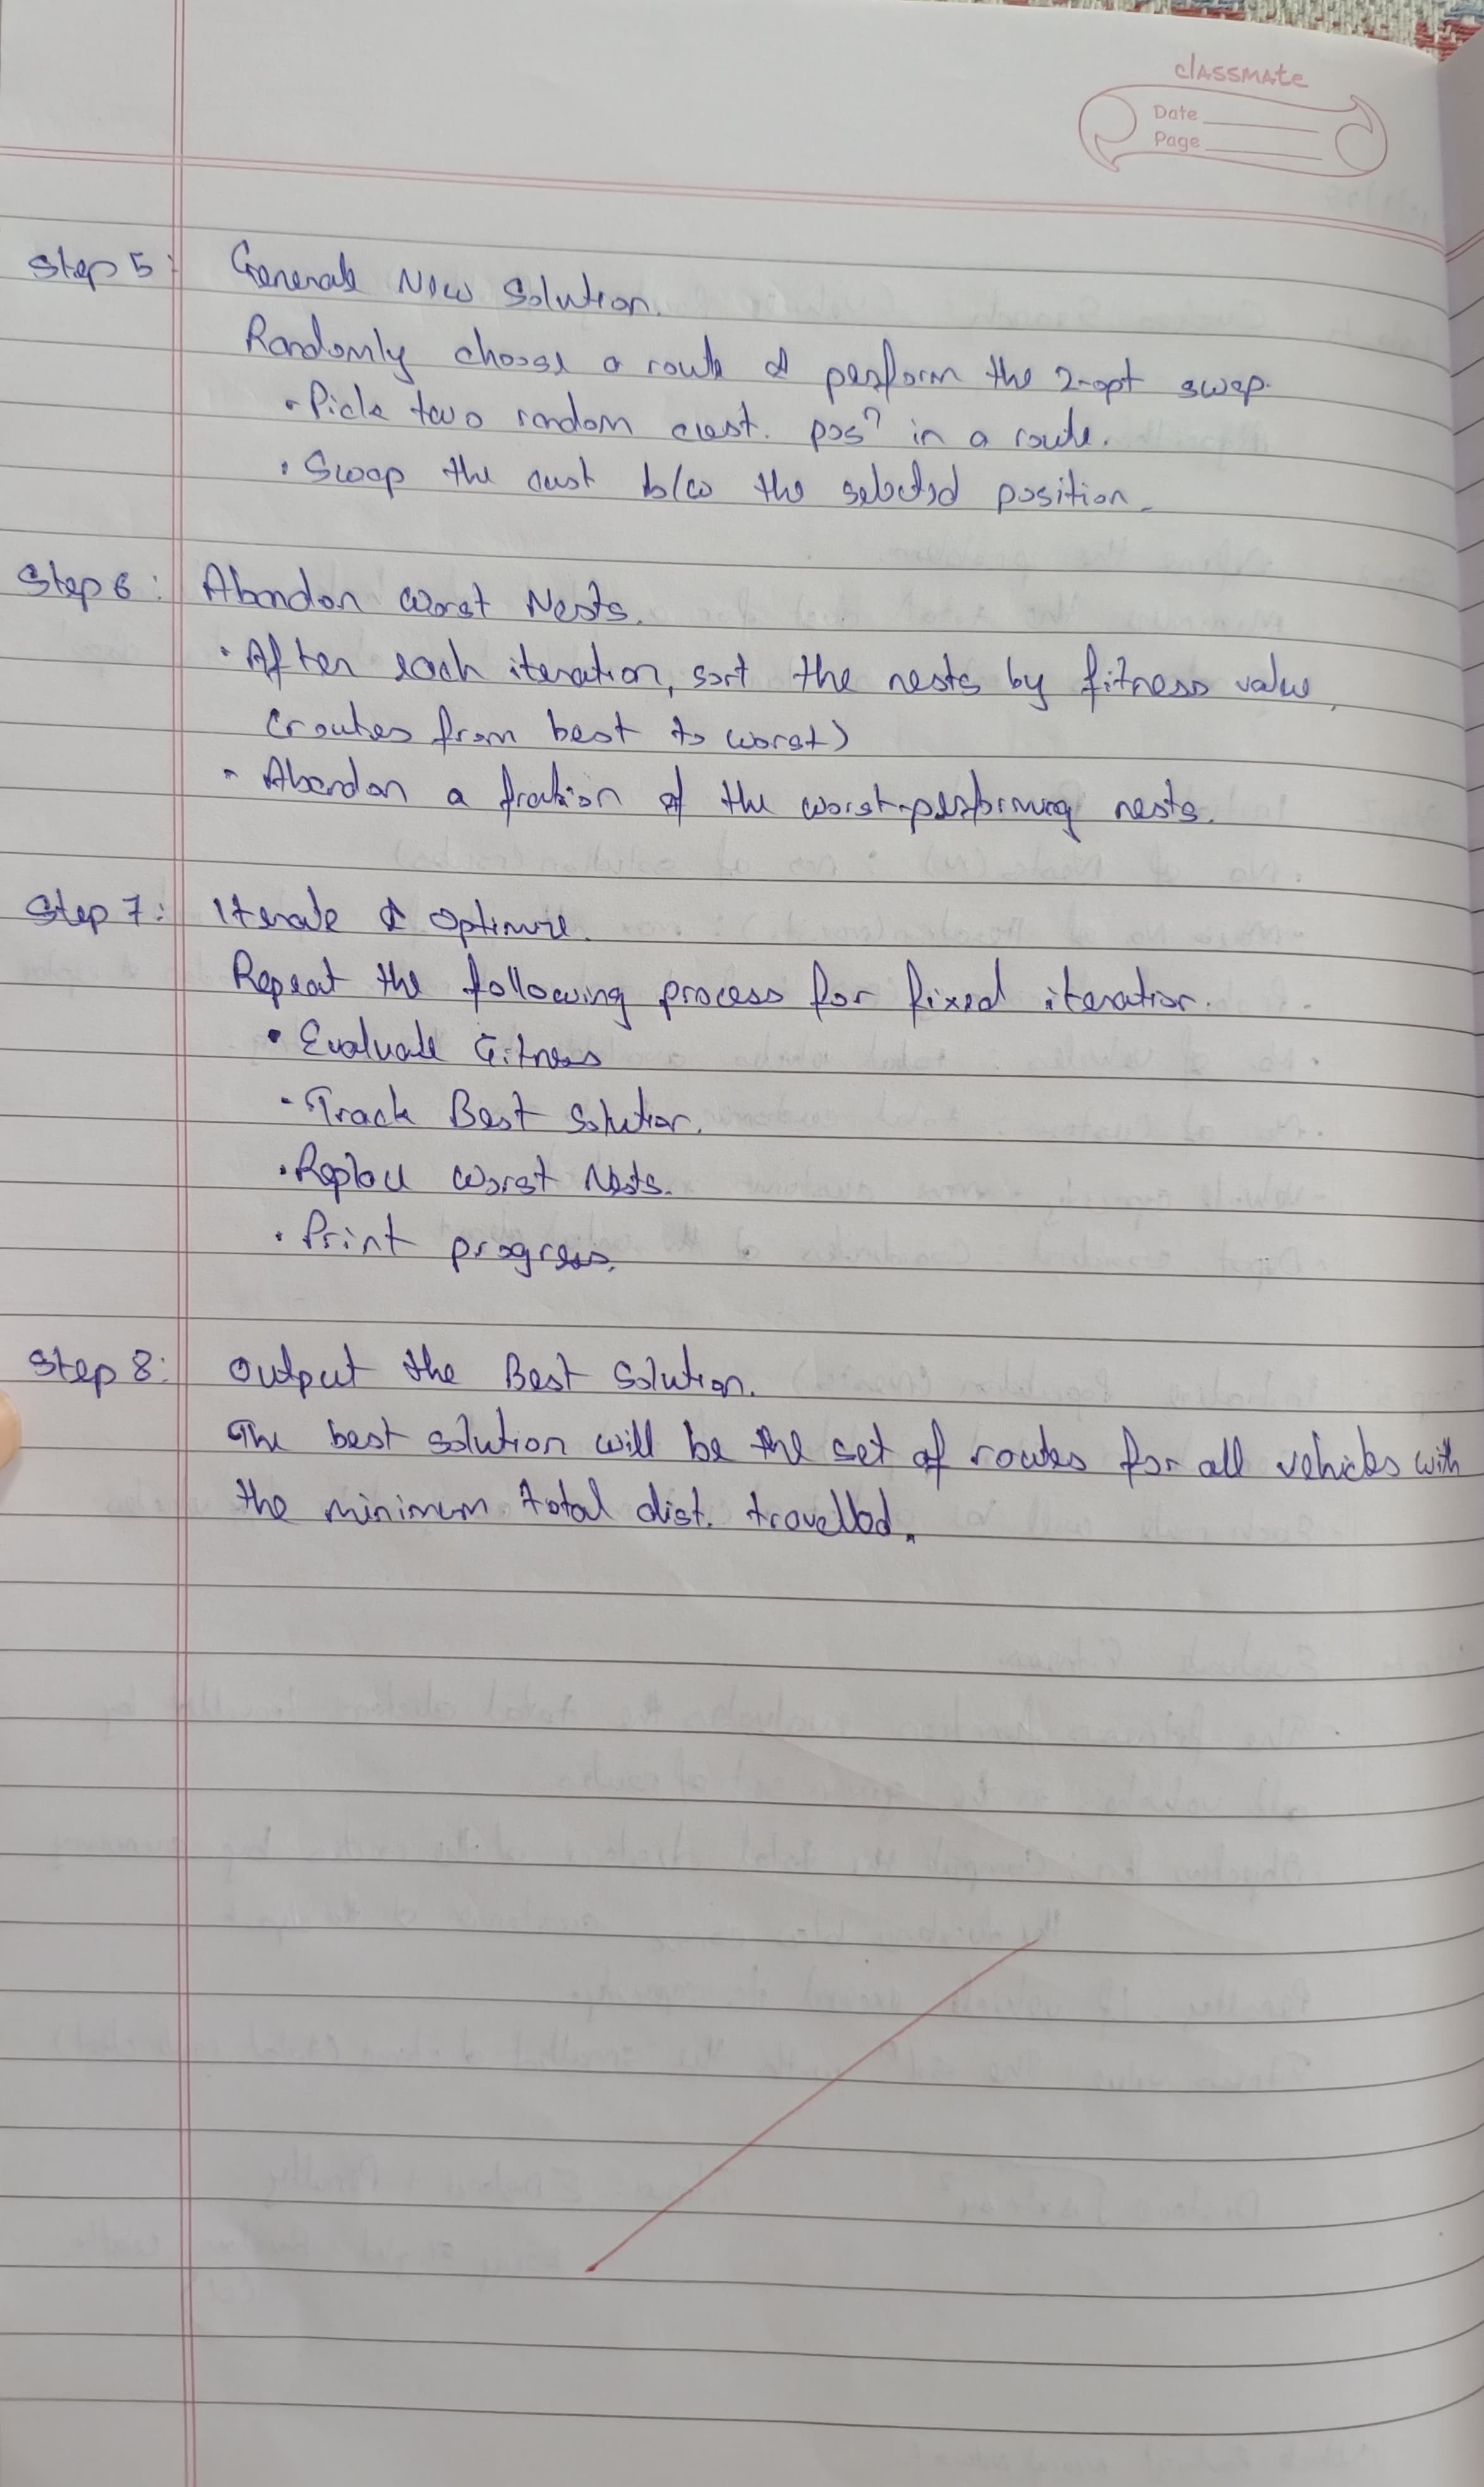 classmate
Date
Page
Step 5: Generate New Solution.
Randomly choose a route & perform the 2-opt swap.
• Pick two random cust. posⁿ in a route.
• Swap the cust b/w the selected position.
Step 6: Abandon Worst Nests.
• After each iteration, sort the nests by fitness value,
(routes from best to worst)
• Abandon a fraction of the worst-performing nests.
Step 7: Iterate & Optimize.
Repeat the following process for fixed iteration.
• Evaluate Fitness
• Track Best Solution.
• Replace Worst Nests.
• Print progress.
Step 8: Output the Best Solution.
The best solution will be the set of routes for all vehicles with
the minimum total dist. travelled.